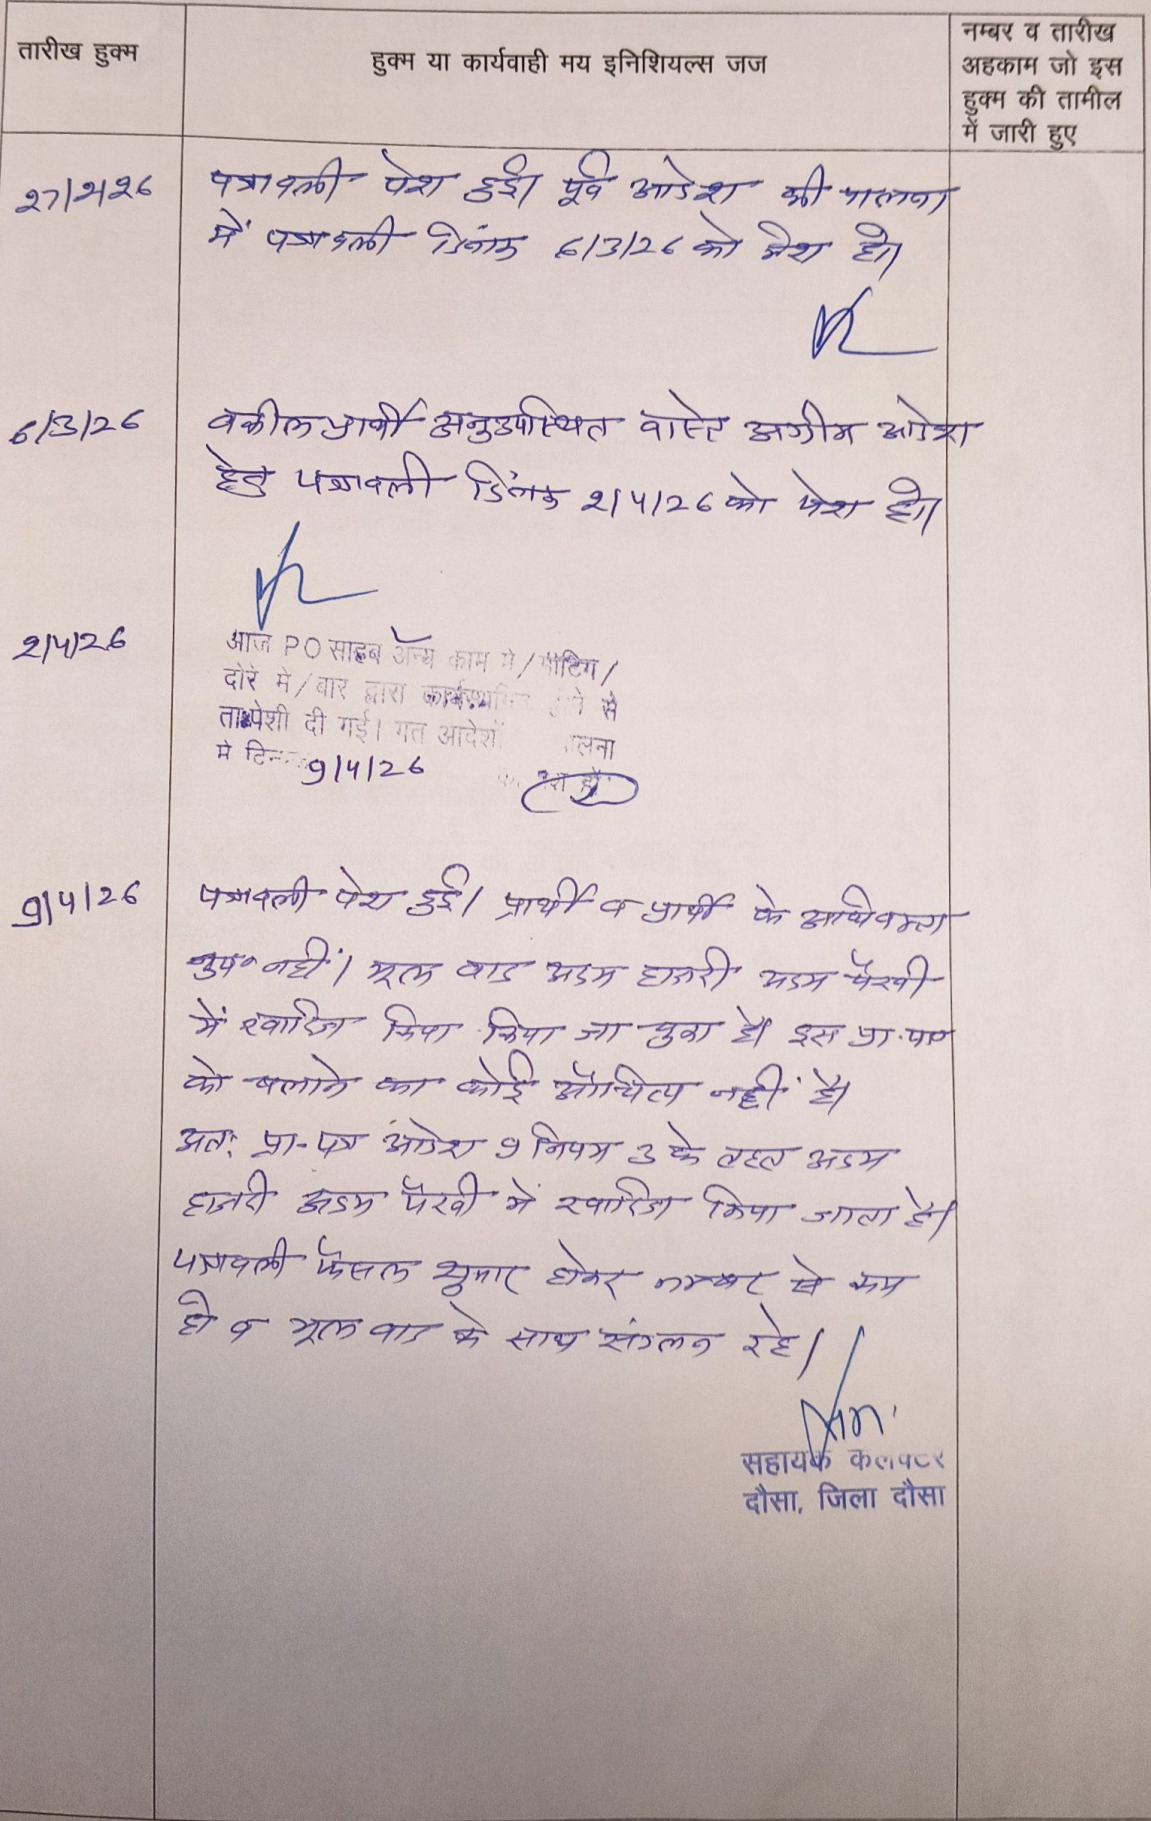 तारीख हुक्म
हुक्म या कार्यवाही मय इनिशियल्स जज
नम्बर व तारीख
अहकाम जो इस
हुक्म की तामील
में जारी हुए
27/2/26
पत्रावली पेश हुई। पूर्व आदेश की पालना
में पत्रावली दिनांक 6/3/26 को पेश हो।
6/3/26
वकील प्रार्थी अनुउपस्थित वास्ते अग्रीम आदेश
हेतु पत्रावली दिनांक 2/4/26 को पेश हो।
2/4/26
आज PO साहब अन्य काम मे/मीटिंग/
दोरे मे/बार द्वारा कार्यस्थगित होने से
ता०पेशी दी गई। गत आदेश पालना
मे दिनांक 9/4/26 को पेश हो
9/4/26
पत्रावली पेश हुई। प्रार्थी व प्रार्थी के अधिवक्ता
उप० नहीं। मूल वाद अदम हाजरी अदम पैरवी
में खारिज किया किया जा चुका है। इस प्रा.पत्र
को चलाने का कोई औचित्य नहीं है।
अतः प्रा-पत्र आदेश 9 नियम 3 के तहत अदम
हाजरी अदम पैरवी में खारिज किया जाता है।
पत्रावली फैसल शुमार होकर नम्बर से कम
हो व मूल वाद के साथ संलग्न रहे।
सहायक कलक्टर
दौसा, जिला दौसा